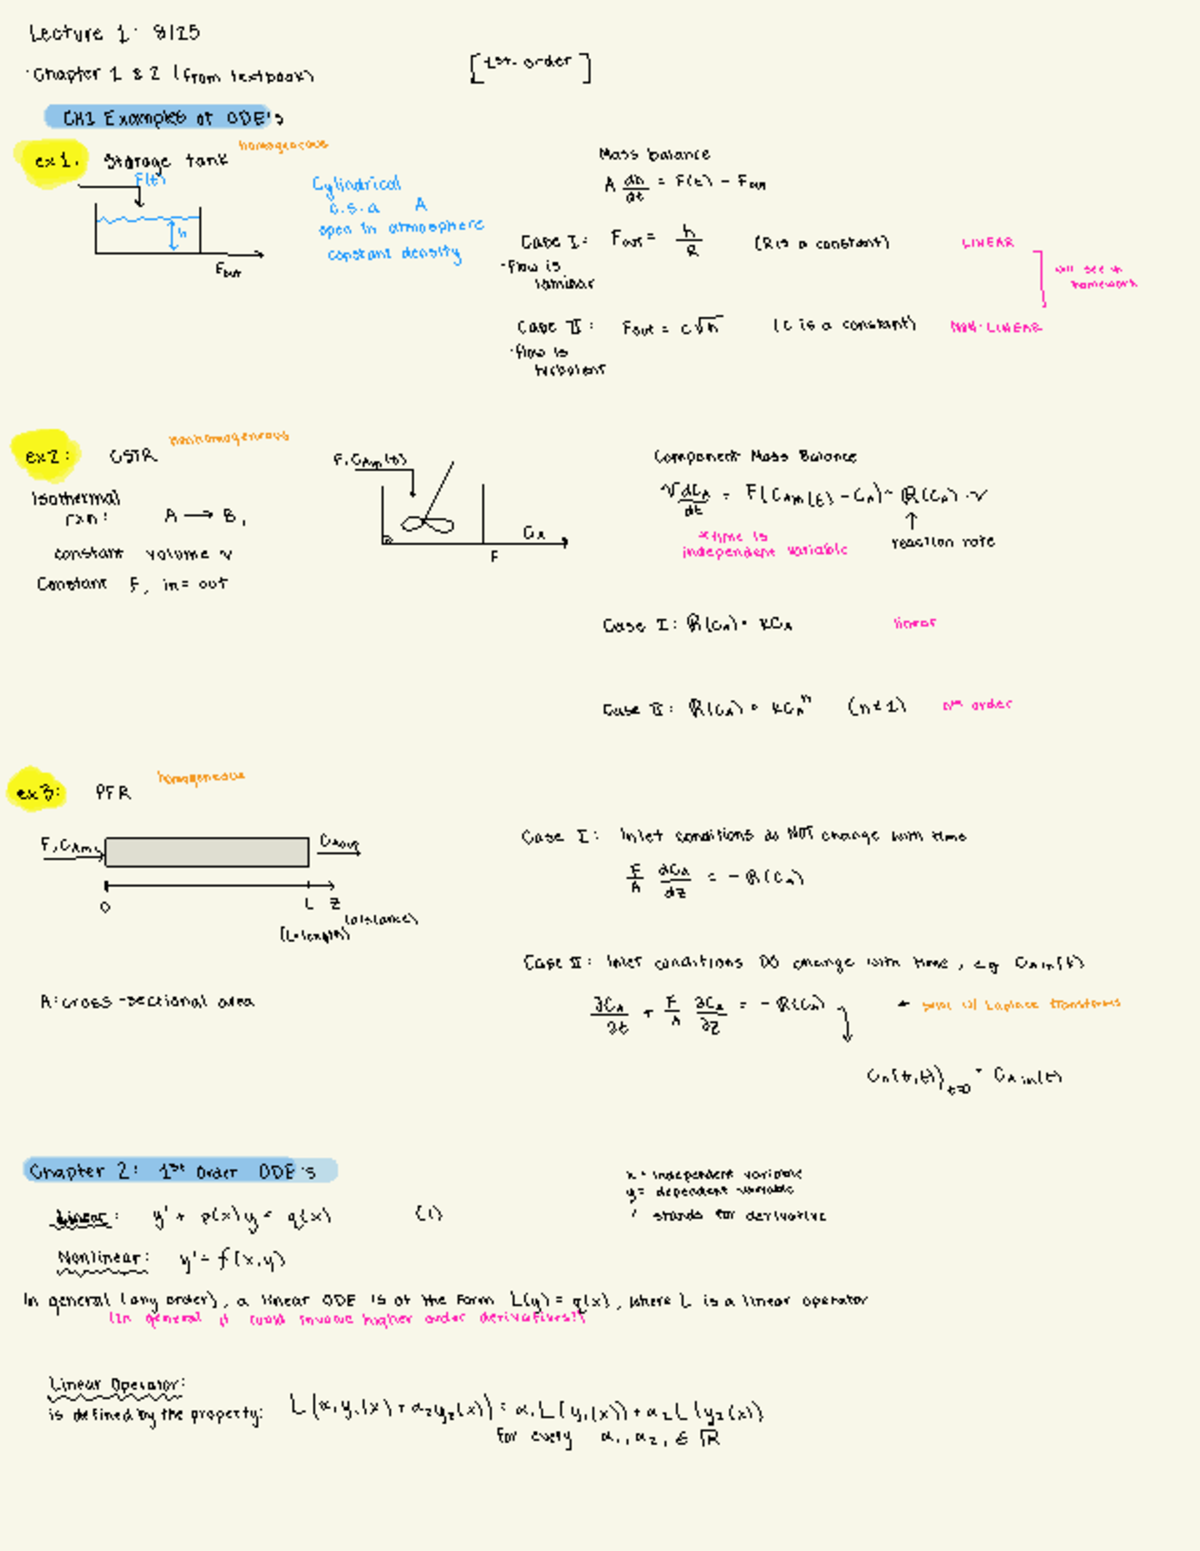 Lecture 1: 8/25
· Chapter 1 & 2 (from textbook)
[1st-order]
CH1 Examples of ODE's
ex1. Storage tank homogeneous
F(t)
h
Fout
Cylindrical
c.s.a A
open in atmosphere
constant density
Mass balance
A dh/dt = F(t) - Fout
Case I: Fout = h/R (R is a constant) LINEAR
· flow is
laminar
will see in
homework
Case II: Fout = c√h (c is a constant) NON-LINEAR
· flow is
turbulent
ex2: CSTR nonhomogeneous
Isothermal
rxn: A → B,
constant volume V
Constant F, in = out
F, CAin(t)
CA
F
Component Mass Balance
V dCA/dt = F(CAin(t) - CA) - R(CA) · V
↑
reaction rate
*time is
independent variable
Case I: R(CA) = kCA linear
Case II: R(CA) = kCA^n (n≠1) nth order
ex3: PFR homogeneous
F, CAin
CAout
0 L Z
(distance)
(L=length)
A: cross-sectional area
Case I: Inlet conditions do NOT change with time
F/A dCA/dz = -R(CA)
Case II: Inlet conditions DO change with time, eg CAin(t)
∂CA/∂t + F/A ∂CA/∂z = -R(CA)
← solve w/ Laplace transforms
= CAin(t)
Chapter 2: 1st Order ODE's
Linear: y' + p(x)y = q(x) (1)
Nonlinear: y' = f(x,y)
x = independent variable
y = dependent variable
' stands for derivative
In general (any order), a linear ODE is of the form L(y) = q(x), where L is a linear operator
(in general it could involve higher order derivatives!)
Linear Operator:
is defined by the property: L(α1y1(x) + α2y2(x)) = α1L(y1(x)) + α2L(y2(x))
for every α1, α2, ∈ ℝ